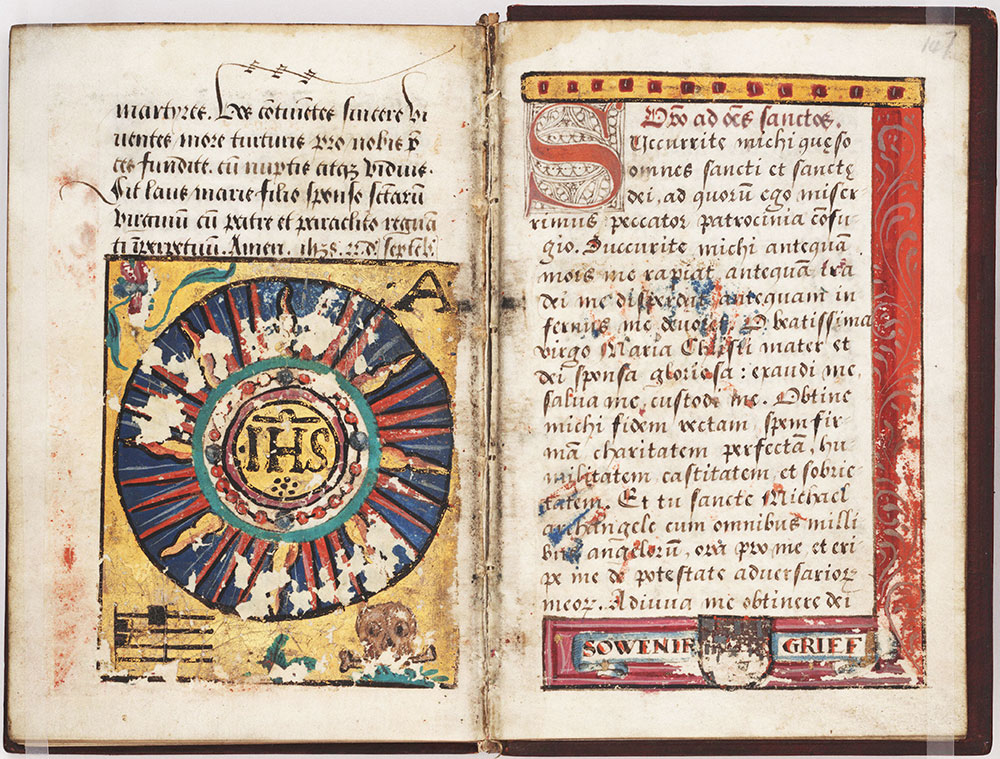 martyres. Hos cōtinētes sincere vi
ventes more turturis pro nobis p̄
ces fundite. cū nuptis atq̄ viduis.
Sit laus marie filio sponso sctārū
virginū cū patre et paraclito regnā
ti ī perpetuū. Amen.
A
IHS
147
Orō ad oēs sanctos.
Succurrite michi quęso
omnes sancti et sanctę
dei, ad quorū ego miser
rimus peccator patrocinia cōfu-
gio. Succurite michi antequā
mors me rapiat antequā ira
dei me disperdat antequam in
fernus me devoret. O beatissima
virgo Maria Christi mater et
dei sponsa gloriosa: exaudi me,
salva me, custodi me. Obtine
michi fidem rectam, spem fir-
mā charitatem perfectā, hu
militatem castitatem et sobrie
tatem. Et tu sancte Michael
archangele cum omnibus milli
bus angelorū, ora pro me, et eri
pe me de potestate adversarioꝝ
meoꝝ. Adiuva me obtinere dei
SOWENIR GRIEF